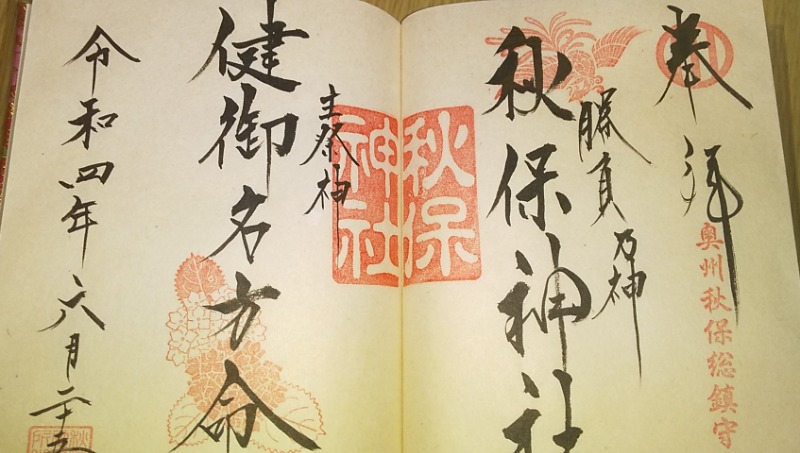 奉拝
奥州秋保総鎮守
勝負乃神
秋保神社
秋保
神社
主祭神
健御名方命
令和四年六月二十五